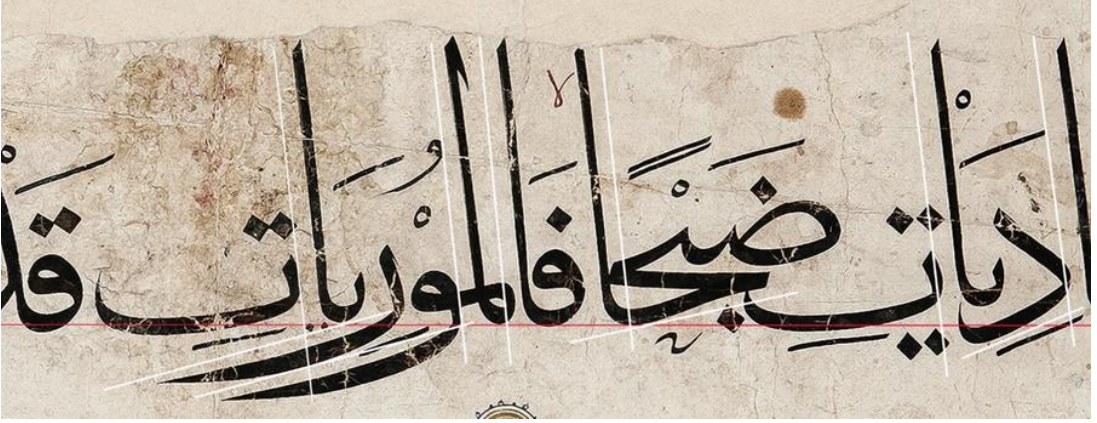 ادِيَاتِ ضَبْحًا فَالْمُوْرِيَاتِ قَدْ